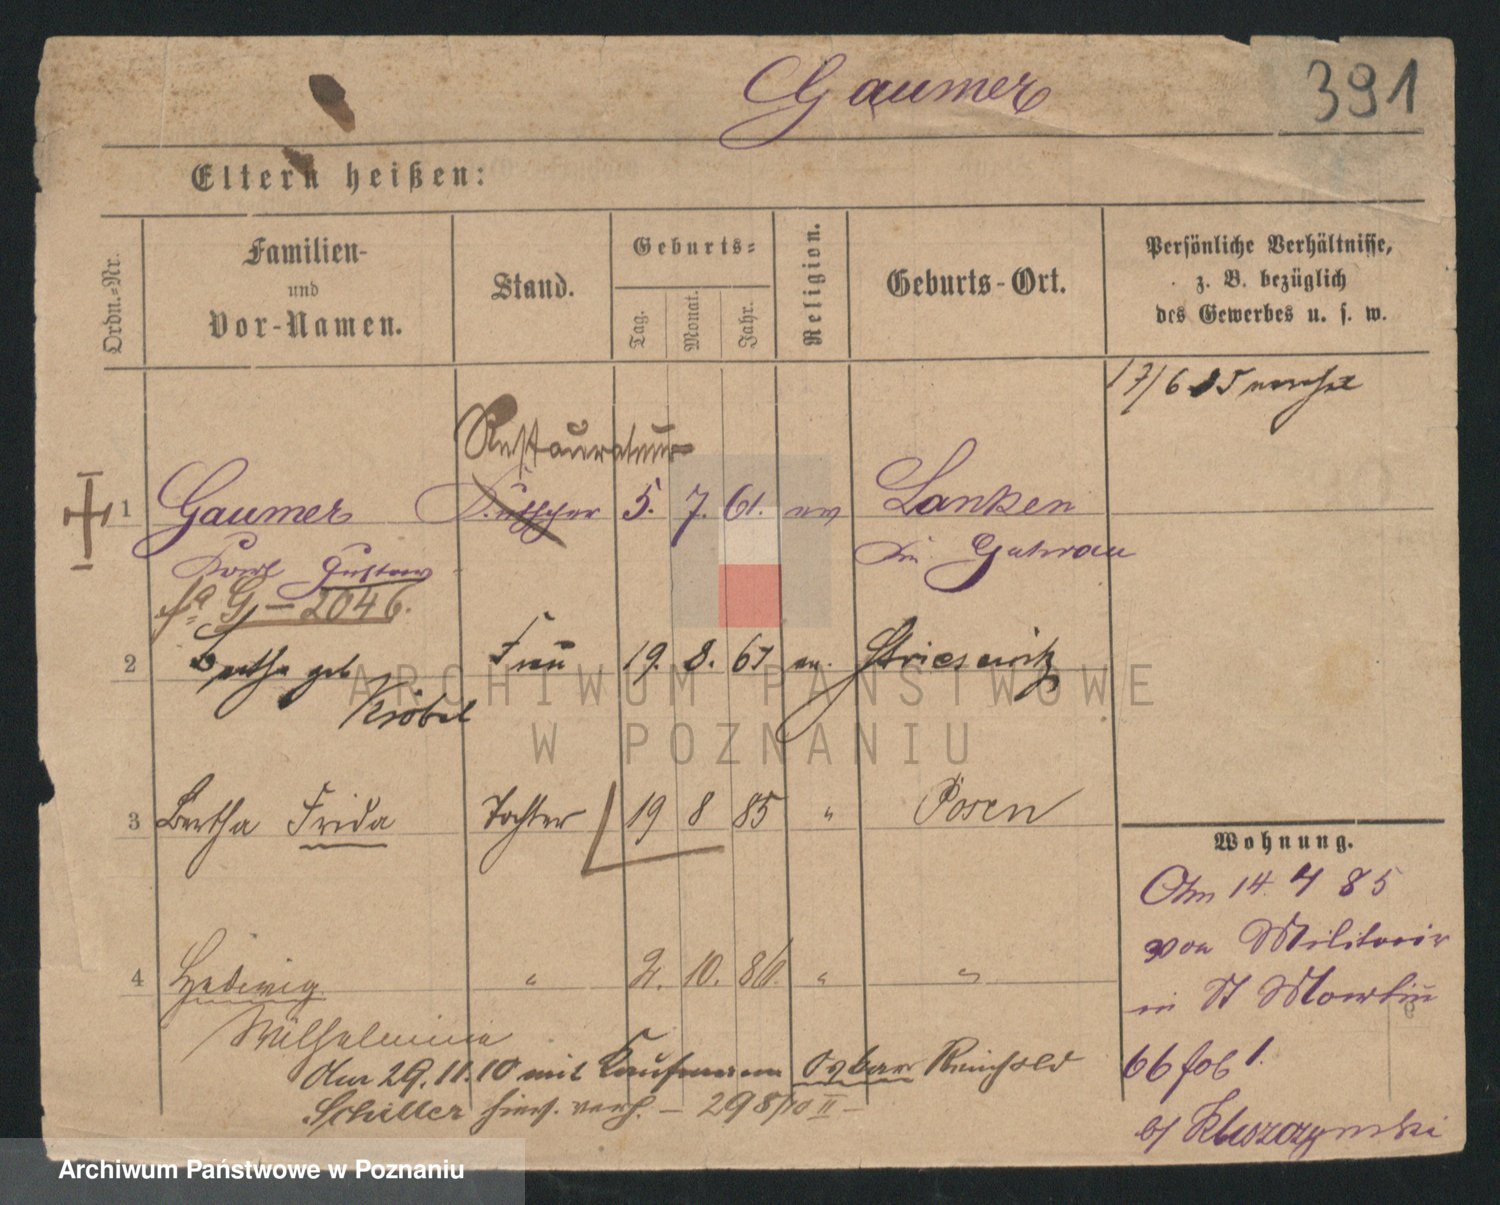 Gaumer
391
Eltern heißen:
Ordn.-Nr.
Familien-
und
Vor-Namen.
Stand.
Geburts-
Tag.
Monat.
Jahr.
Religion.
Geburts-Ort.
Persönliche Verhältnisse,
z. B. bezüglich
des Gewerbes u. s. w.
17/6 85
Restaurateur
1 Gaumer Kutscher 5. 7. 61. ev Lanken
Karl Gustav Kr. Guhrau
G – 2046.
2 Bertha geb Frau 19. 8. 61 ev. Striesewitz
Kröbel
3 Bertha Frida Tochter 19 8 85 " Posen
Wohnung.
Am 14. 7 85
von Militair
in St Martin
66 1.
b/
4 Hedwig " 2. 10. 86. " "
Wilhelmine
Am 29.11.10 mit Kaufmann Oskar Reinhold
Schiller hier. verh. – 298/10 II –
ARCHIWUM PAŃSTWOWE
W POZNANIU
Archiwum Państwowe w Poznaniu